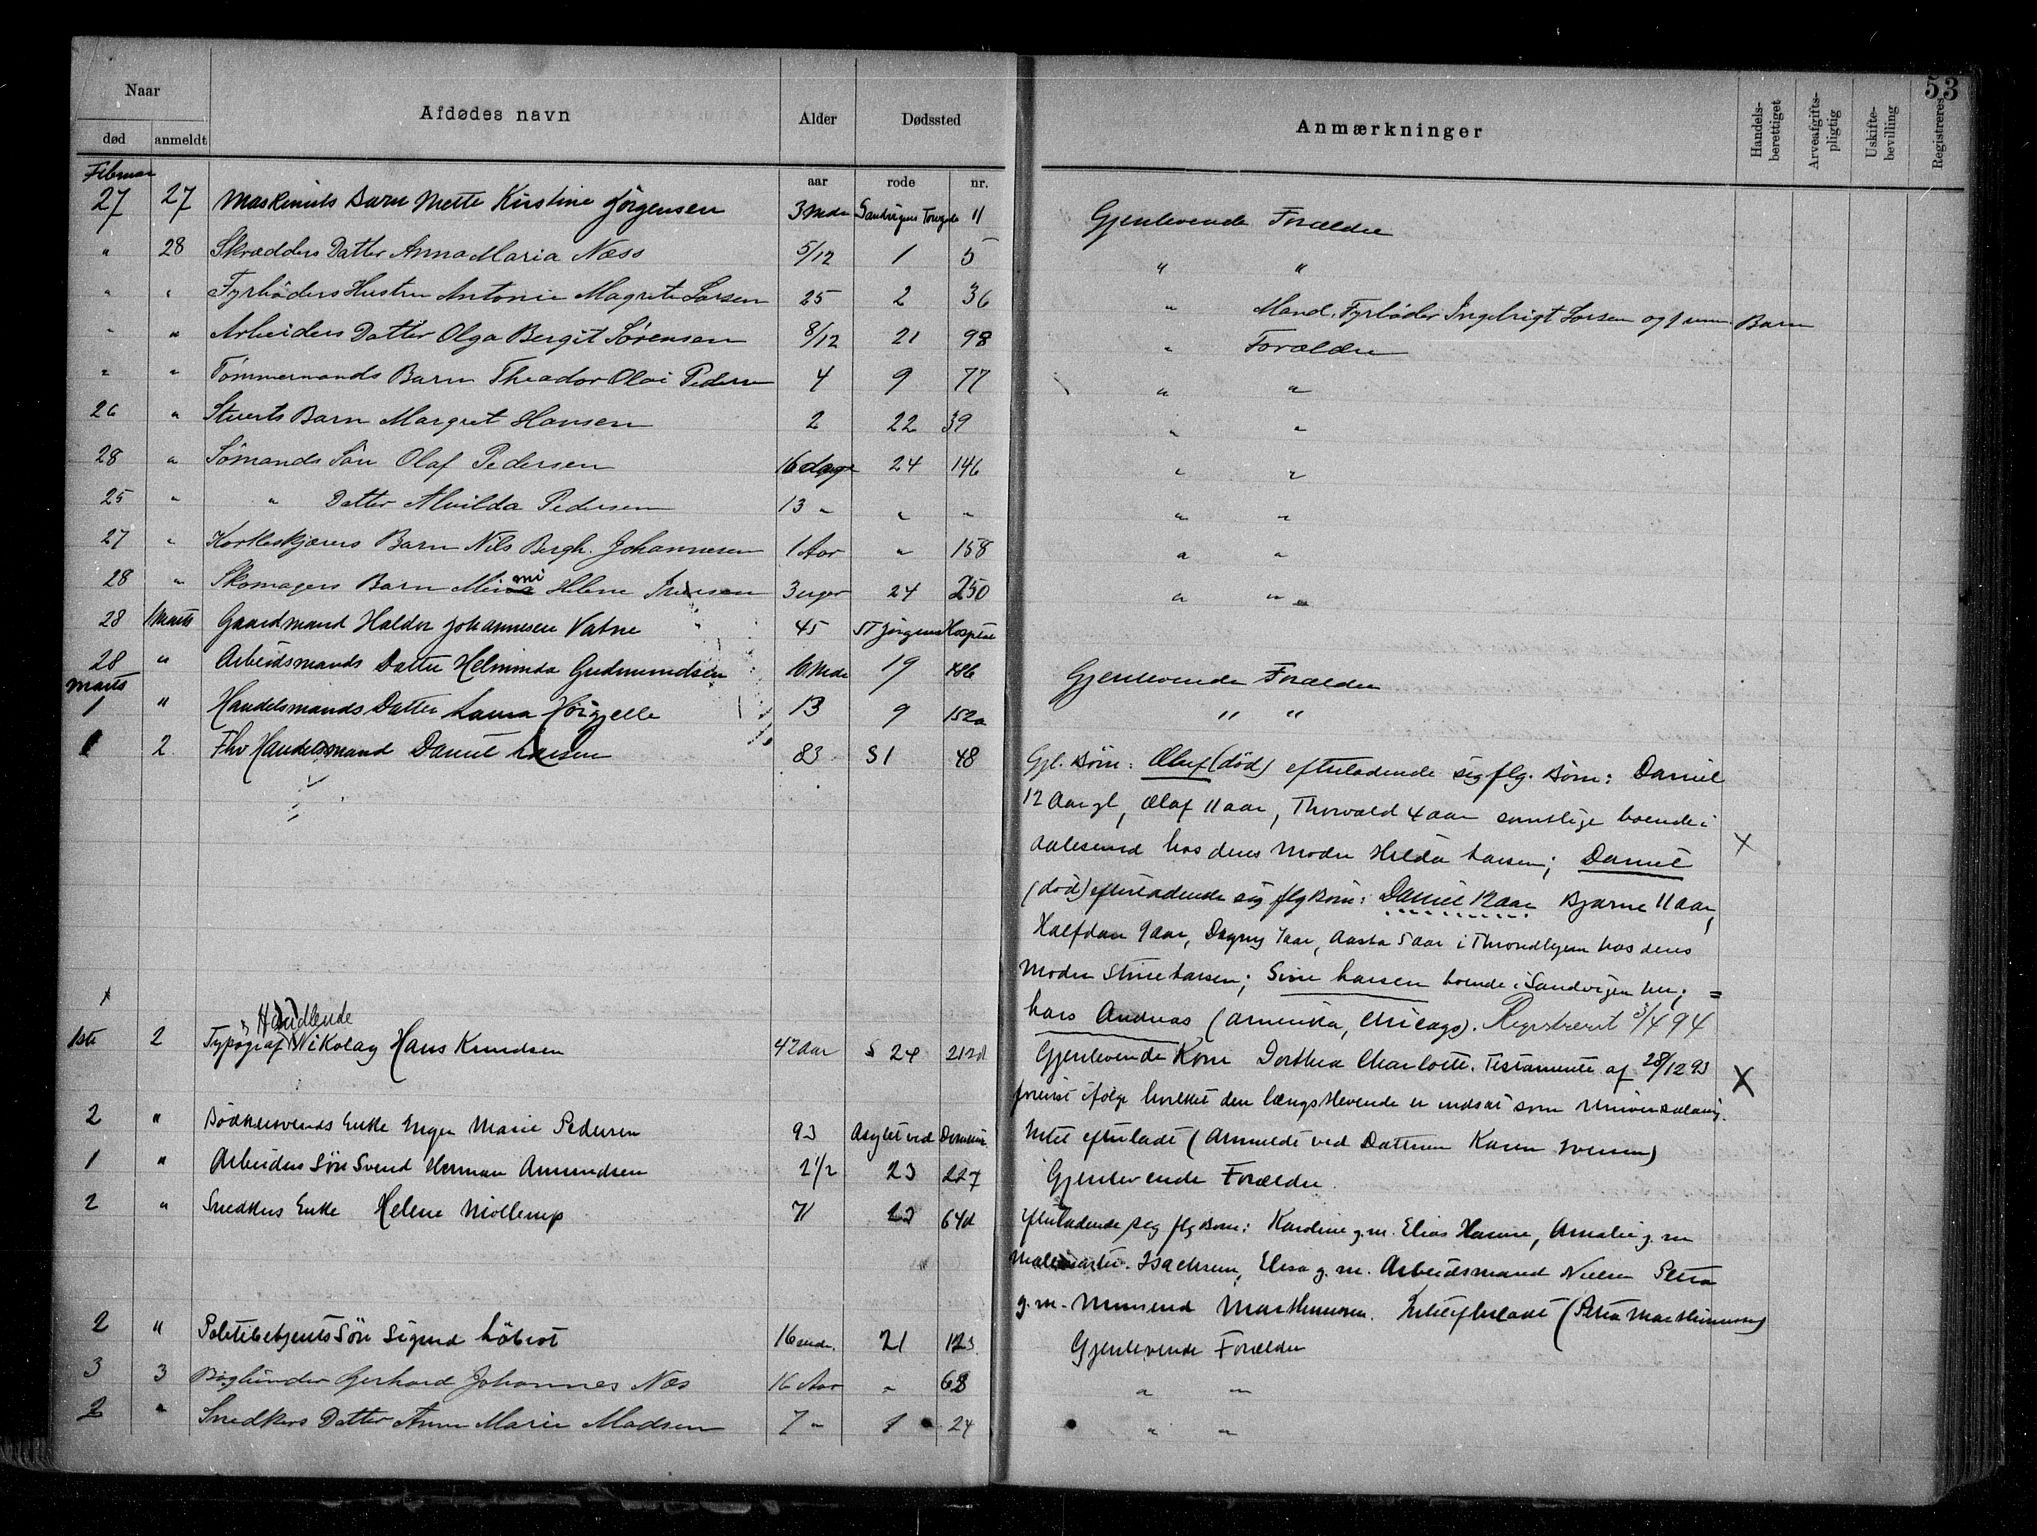 53
Naar
Afdødes navn Alder Dødssted Anmærkninger Handels-berettiget Arveafgifts-pligtig Uskifte-bevilling Registreres
død anmeldt
aar rode nr.
Februar
27 27 Maskinists Barn Mette Kirstine Jörgensen 3 Mdr Sandvigens Torvgade 11 Gjenlevende Forældre
" 28 Skrædders Datter Anna Maria Næss 5/12 1 5 " "
" " Fyrbøders Hustru Antonie Magrete Larsen 25 2 36 " Mand, Fyrbøder Ingebrigt Larsen og 1 um. Barn
" " Arbeiders Datter Olga Bergit Sørensen 8/12 21 98 " Forældre
" " Tømmermands Barn Theodor Olai Pedersen 4 9 77 " "
26 " Stuerts Barn Margret Hansen 2 22 39 " "
28 " Sømands Søn Olaf Pedersen 16 dage 24 146 " "
25 " " Datter Alvilda Pedersen 13 " " " " "
27 " Korkeskjærers Barn Nils Bergh. Johannesen 1 Aar " 158 " "
28 " Skomagers Barn Mimi Helene 3 uger 24 250 " "
28 1 Marts Gaardmand Haldor Johannesen Vatne 45 St Jørgens Hospital
28 " Arbeidsmands Datter Helminda Gudmundsen 10 Mdr 19 Gjenlevende Forældre
Marts
1 " Handelsmands Datter Laura 13 9 152a " "
1 2 Fhv Handelsmand Daniel Larsen 83 S 1 48 Gjl. Børn: Oluf (død) efterladende sig flg. Børn: Daniel
12 Aar gl, Olaf 11 aar, Thorvald 4 aar samtlige boende i
Aalesund hos deres Moder Hilda Larsen; Daniel
(død) efterladende sig flg Børn: Daniel 12 aar Bjarne 11 aar,
Halfdan 9 aar, Dagny 7 aar, Aasta 5 aar i Throndhjem hos deres
Moder Stine Larsen; Sine Larsen boende i Sandvigen her;
Lars Andreas (Amerika, Chicago). Registreret 3/4 94
Handlende
1ste 2 Typograf Nikolay Hans Knudsen 47 aar S 24 212d Gjenlevende Kone Dorthea Charlotte. Testamente af 28/12 93
forevist ifølge hvilket den længstlevende er indsat som Universalarving.
2 " Bødkersvends Enke Inger Marie Pedersen 93 Asylet ved Domkirken Intet efterladt (Anmeldt ved Datteren Karen Iversen)
1 " Arbeiders Søn Svend Herman Amundsen 2 1/2 23 227 Gjenlevende Forældre.
2 " Snedkers Enke Helene Mollerup 71 64d Efterladende sig flg Børn: Karoline g.m. Elias Hanne, Amalie g.m
Malermester Isachsen, Elisa g.m. Arbeidsmand Nielsen Petra
g.m. Marthinussen. Intet efterladt (Petra Marthinussen)
2 " Politibetjents Søn Sigurd Löbrot 16 mdr. 21 123 Gjenlevende Forældre
3 3 Bogbinder Gerhard Johannes Næs 16 Aar " 68 " "
2 " Snedkers Datter Anne Marie Madsen 7 " 1 24 " "